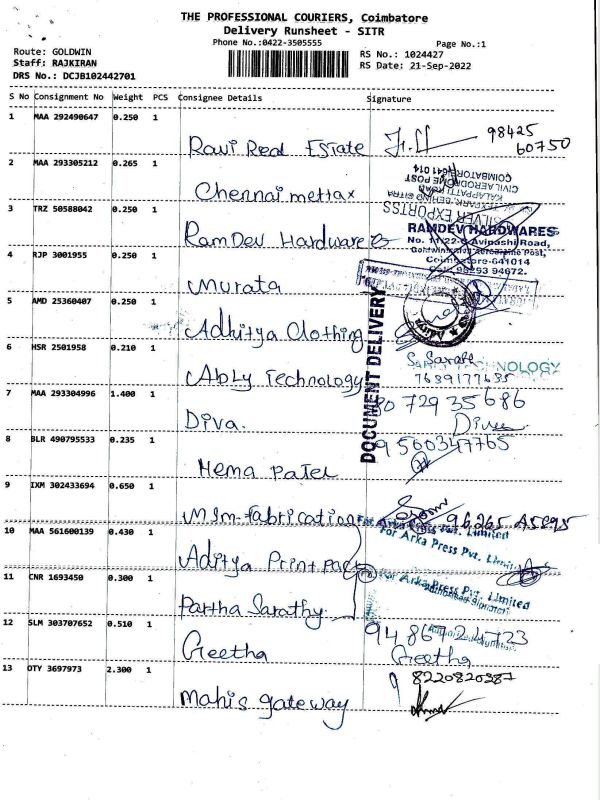 THE PROFESSIONAL COURIERS, Coimbatore
Delivery Runsheet - SITR
Phone No.:0422-3505555
Page No.:1
Route: GOLDWIN
RS No.: 1024427
Staff: RAJKIRAN
RS Date: 21-Sep-2022
DRS No.: DCJB102442701
S No Consignment No Weight PCS Consignee Details Signature
1 MAA 292490647 0.250 1
Ravi Real Estate 98425
60750
2 MAA 293305212 0.265 1
Chennai mettax
COIMBATORE
CIVIL AERODROME POST
SILVER EXPORTSS
3 TRZ 50588042 0.250 1
RamDev Hardware
RAMDEV HARDWARES
Avinashi Road,
Coimbatore-641014
94672.
4 RJP 3001955 0.250 1
Murata
5 AMD 25360407 0.250 1
Adhitya Clothing
DOCUMENT DELIVERY
6 HSR 2501958 0.210 1
Ably Technology
TECHNOLOGY
7639177635
7 MAA 293304996 1.400 1
80 729 35 686
Diva.
8 BLR 490795533 0.235 1
9 500347765
Hema Patel
9 IXM 302433694 0.650 1
MSM-fabrication
For Arka Press Pvt. Limited
10 MAA 561600139 0.430 1
For Arka Press Pvt. Limited
Aditya Print pack
11 CNR 1693450 0.300 1
For Arka Press Pvt. Limited
Partha Sarathy
12 SLM 303707652 0.510 1
Geetha
Geetha
13 OTY 3697973 2.300 1
8220820387
Mahis gateway